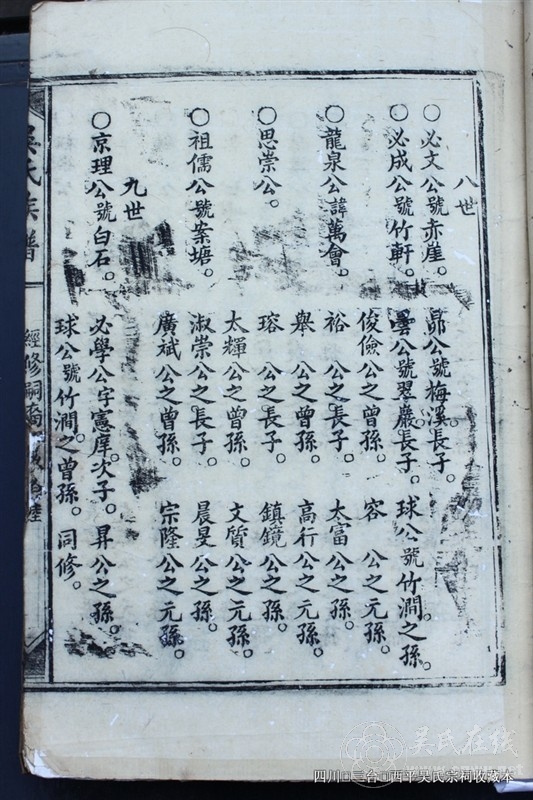 八世
〇必文公號赤崖。 昴公號梅溪長子。
〇必成公號竹軒。 曇公號翠巖長子。 球公號竹澗之孫。
俊儉公之曾孫。 容公之元孫。
〇龍泉公諱萬會。 裕公之長子。 太富公之孫。
舉公之曾孫。 高行公之元孫。
〇思崇公。 瑢公之長子。 鎮鏡公之孫。
太輝公之曾孫。 文質公之元孫。
〇祖儒公號案塘。 淑崇公之長子。 晨旻公之孫。
廣斌公之曾孫。 宗隆公之元孫。
九世
〇京理公號白石。 必學公字憲庠次子。 昇公之孫。
球公號竹澗之曾孫。 同修。
吳氏族譜 經修嗣裔
吴氏在线
四川□三台□西平吴氏宗祠收藏本